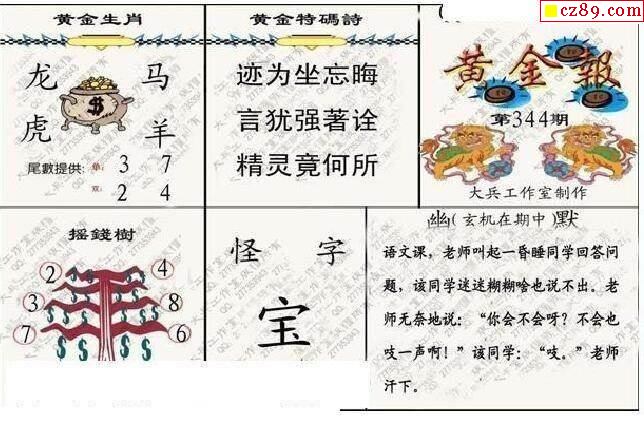 cz89.com
黄金生肖
龙 马
虎 羊
尾數提供: 单: 3 7
双: 2 4
黄金特碼詩
迹为坐忘晦
言犹强著诠
精灵竟何所
黄金報
第344期
大兵工作室制作
摇錢樹
2 4
3 8
7 6
怪 字
宝
幽(玄机在期中)默
语文课，老师叫起一昏睡同学回答问
题，该同学迷迷糊糊啥也说不出。老
师无奈地说：“你会不会呀？不会也
吱一声啊！”该同学：“吱。”老师
汗下。